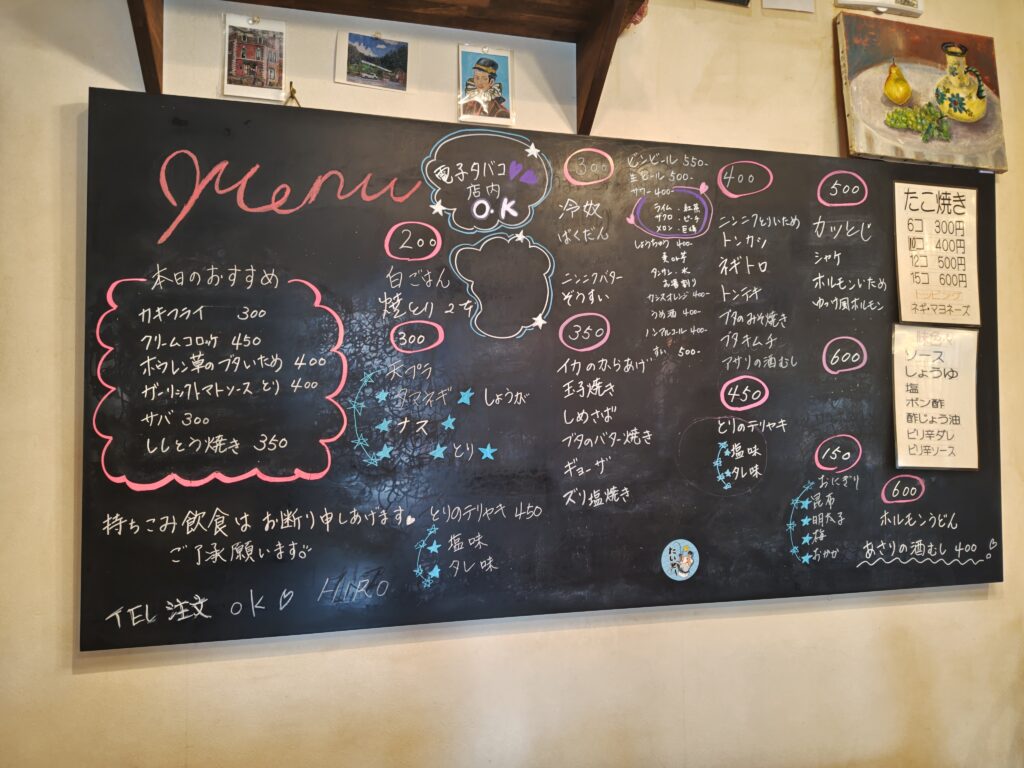 Menu
電子タバコ
店内
O.K
本日のおすすめ
カキフライ 300
クリームコロッケ 450
ホウレン草のブタいため 400
ガーリックトマトソースとり 400
サバ 300
ししとう焼き 350
持ちこみ飲食はお断り申しあげます。
ご了承願います
TEL 注文 OK HIRO
200
白ごはん
焼とり 2本
300
天プラ
タマネギ しょうが
ナス
とり
とりのテリヤキ 450
塩味
タレ味
300
冷奴
ばくだん
ニンニクバター
ぞうすい
350
イカのからあげ
玉子焼き
しめさば
ブタのバター焼き
ギョーザ
ズリ塩焼き
ビンビール 550-
生ビール 500-
サワー 400-
ライム・紅茶
ザクロ・ピーチ
メロン・巨峰
しょうちゅう 400-
麦 or 芋
タンサン・水
お湯割り
カシスオレンジ 400-
うめ酒 400-
ノンアルコール 400-
500-
400
ニンニクとりいため
トンカツ
ネギトロ
トンテキ
ブタのみそ焼き
ブタキムチ
アサリの酒むし
450
とりのテリヤキ
塩味
タレ味
500
カツとじ
シャケ
ホルモンいため
ゆック風ホルモン
600
150
おにぎり
昆布
明太子
梅
おかか
600
ホルモンうどん
あさりの酒むし 400
たこ焼き
6コ 300円
10コ 400円
12コ 500円
15コ 600円
トッピング
ネギ・マヨネーズ
ソース
しょうゆ
塩
ポン酢
酢じょう油
ピリ辛ダレ
ピリ辛ソース